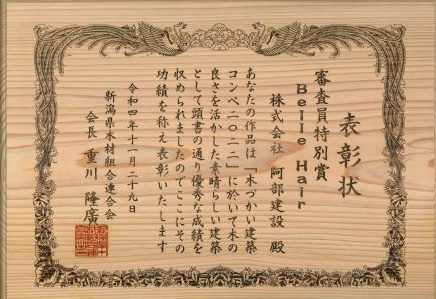 表彰状
審査員特別賞
Belle Hair
株式会社 阿部建設 殿
あなたの作品は『木づかい建築
コンペ二〇二二』に於いて木の
良さを活かした素晴らしい建築
として頭書の通り優秀な成績を
収められましたのでここにその
功績を称え表彰いたします
令和四年十一月二十九日
新潟県木材組合連合会
会長 重川 隆廣